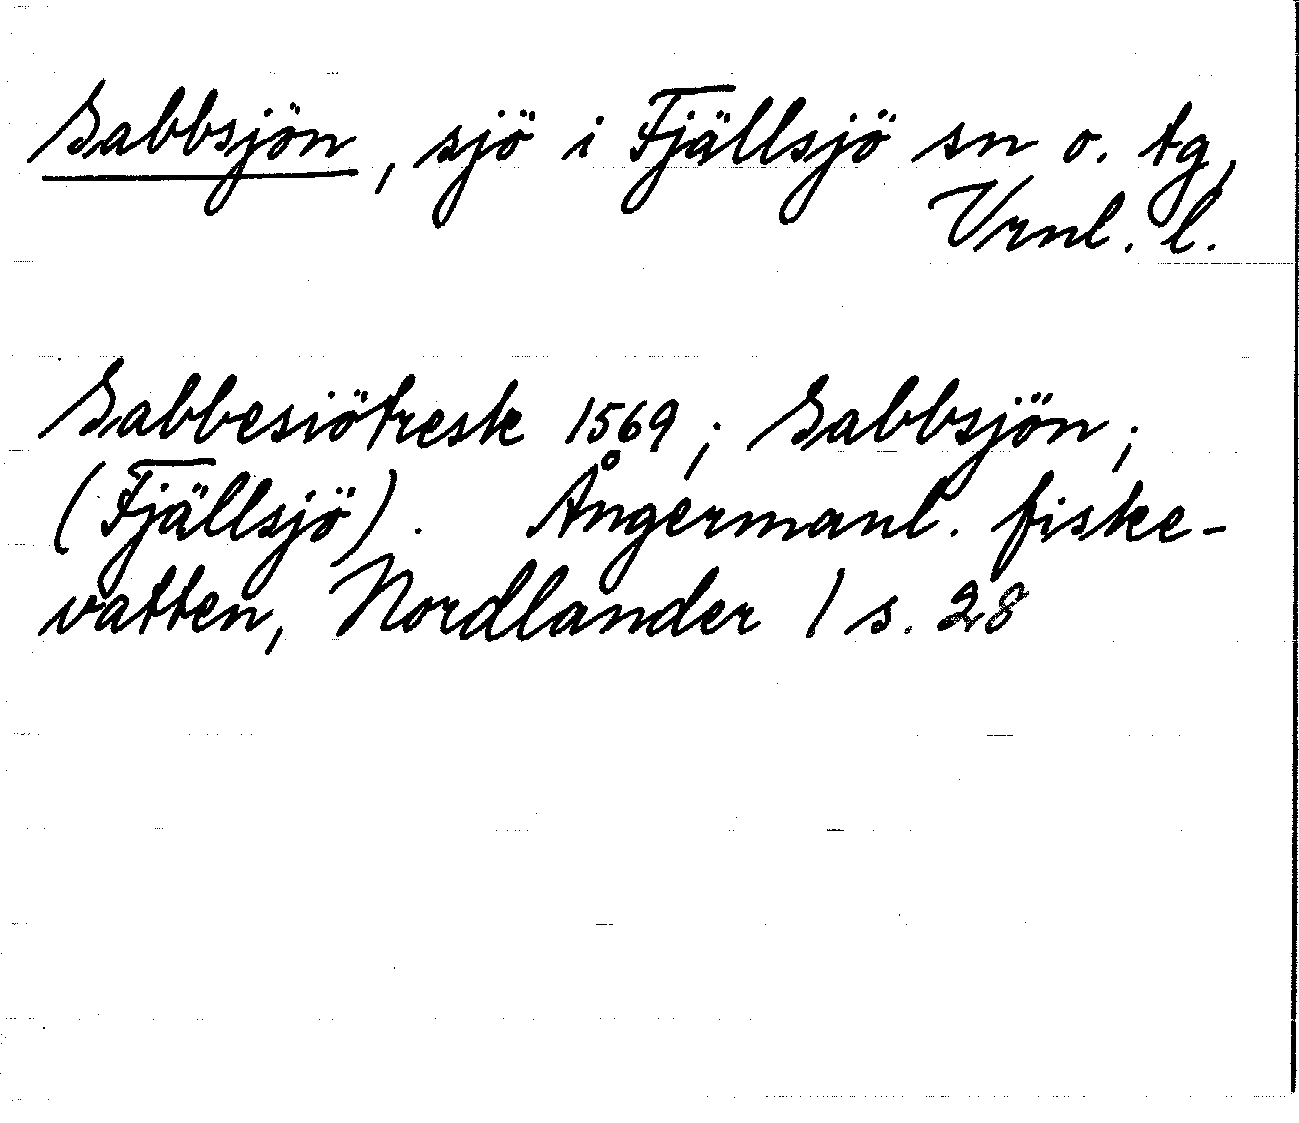 Sabbsjön, sjö i Fjällsjö sn o. tg,
Vrnl. l.
Sabbesiötresk 1569; Sabbsjön;
(Fjällsjö). Ångermanl. fiske-
vatten, Nordlander 1 s. 28